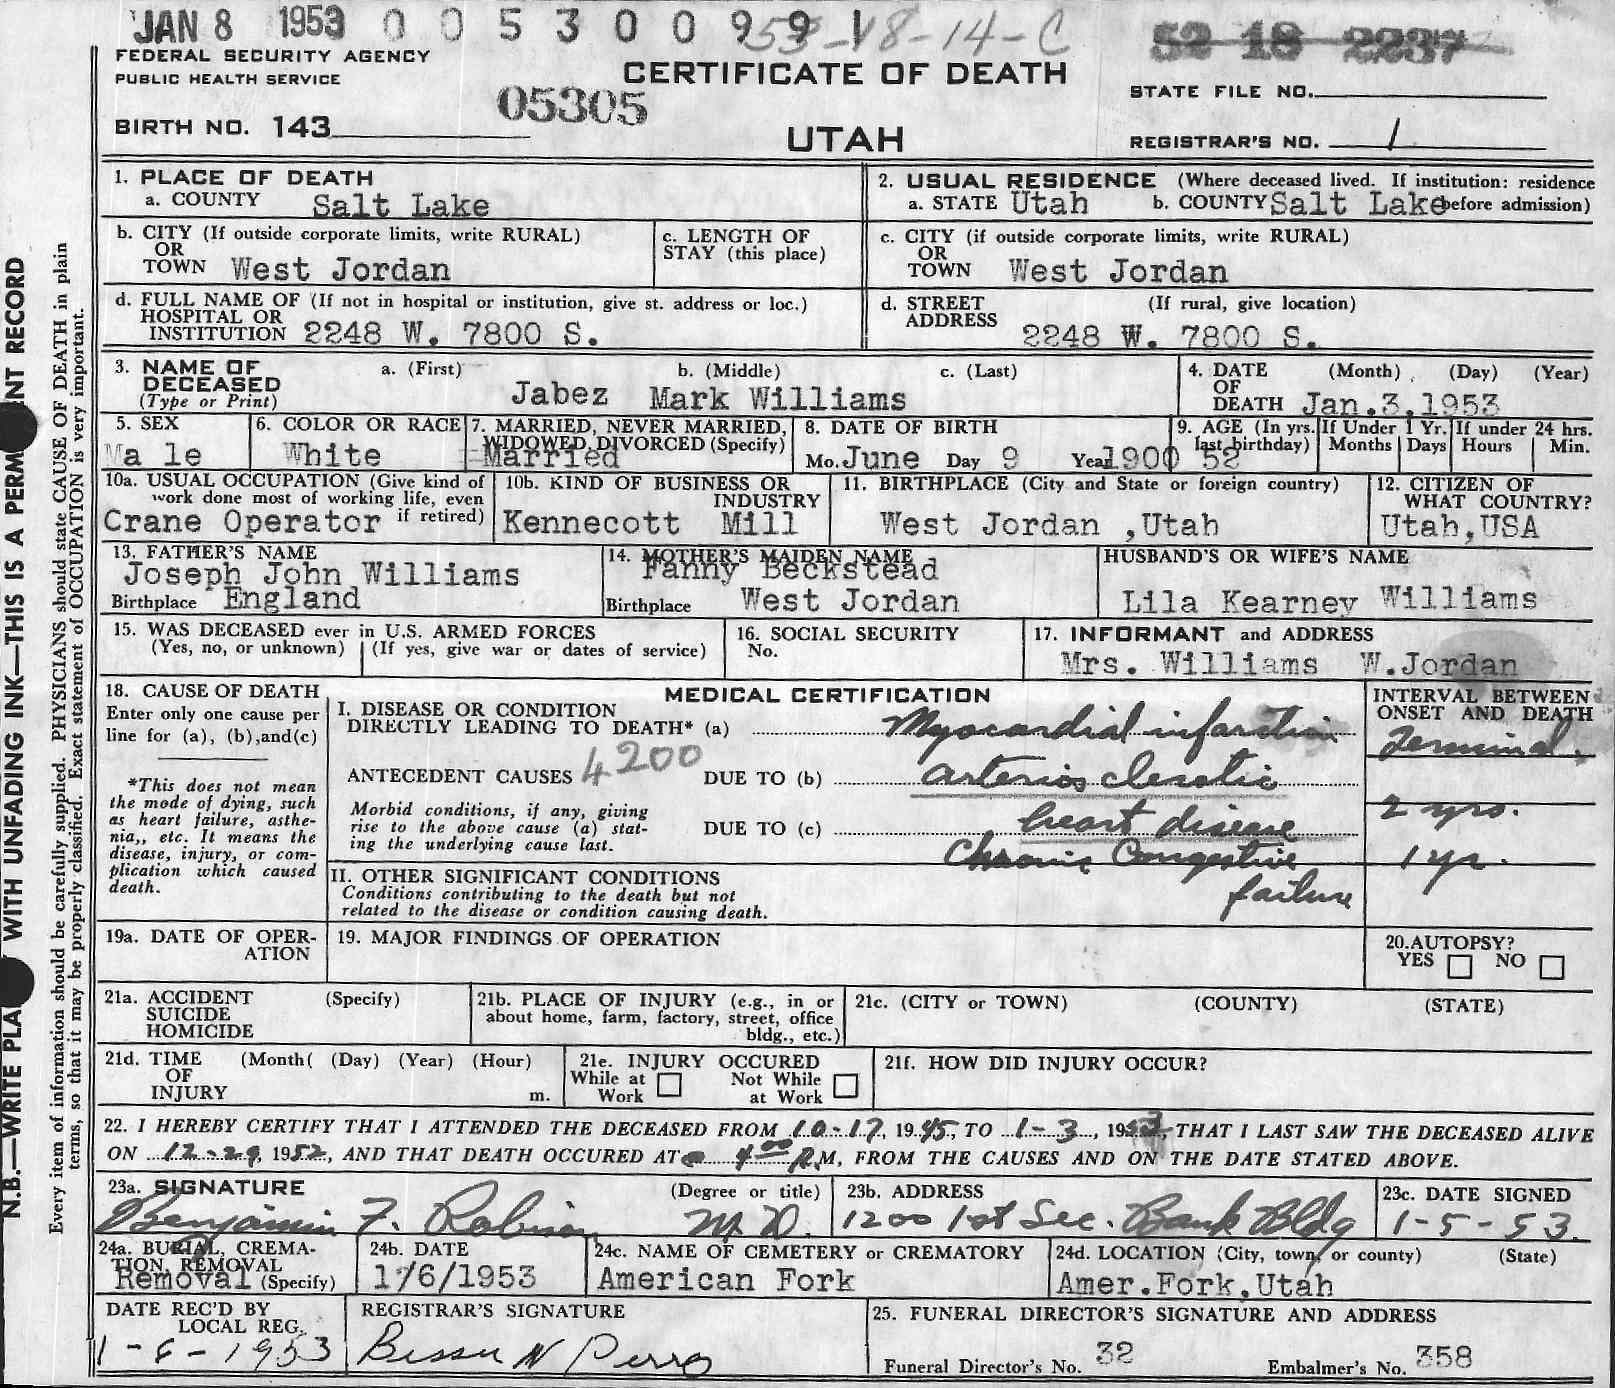 JAN 8 1953 0 0 5 3 0 0 9 9 1 53-18-14-C 52 18 2237
FEDERAL SECURITY AGENCY
PUBLIC HEALTH SERVICE
CERTIFICATE OF DEATH
STATE FILE NO.
05305
BIRTH NO. 143
UTAH
REGISTRAR'S NO. 1
1. PLACE OF DEATH
a. COUNTY Salt Lake
2. USUAL RESIDENCE (Where deceased lived. If institution: residence
a. STATE Utah b. COUNTY Salt Lake before admission)
b. CITY (If outside corporate limits, write RURAL)
OR
TOWN West Jordan
c. LENGTH OF
STAY (this place)
c. CITY (if outside corporate limits, write RURAL)
OR
TOWN West Jordan
d. FULL NAME OF (If not in hospital or institution, give st. address or loc.)
HOSPITAL OR
INSTITUTION 2248 W. 7800 S.
d. STREET (If rural, give location)
ADDRESS
2248 W. 7800 S.
3. NAME OF a. (First) b. (Middle) c. (Last)
DECEASED
(Type or Print)
Jabez Mark Williams
4. DATE (Month) (Day) (Year)
OF
DEATH Jan.3,1953
5. SEX
Ma le
6. COLOR OR RACE
White
7. MARRIED, NEVER MARRIED,
WIDOWED, DIVORCED (Specify)
Married
8. DATE OF BIRTH
Mo. June Day 9 Year 1900
9. AGE (In yrs. If Under 1 Yr. If under 24 hrs.
last birthday) Months Days Hours Min.
52
10a. USUAL OCCUPATION (Give kind of
work done most of working life, even
if retired)
Crane Operator
10b. KIND OF BUSINESS OR
INDUSTRY
Kennecott Mill
11. BIRTHPLACE (City and State or foreign country)
West Jordan ,Utah
12. CITIZEN OF
WHAT COUNTRY?
Utah,USA
13. FATHER'S NAME
Joseph John Williams
Birthplace England
14. MOTHER'S MAIDEN NAME
Fanny Beckstead
Birthplace West Jordan
HUSBAND'S OR WIFE'S NAME
Lila Kearney Williams
15. WAS DECEASED ever in U.S. ARMED FORCES
(Yes, no, or unknown) (If yes, give war or dates of service)
16. SOCIAL SECURITY
No.
17. INFORMANT and ADDRESS
Mrs. Williams W.Jordan
18. CAUSE OF DEATH
Enter only one cause per
line for (a), (b),and(c)
*This does not mean
the mode of dying, such
as heart failure, asthe-
nia,, etc. It means the
disease, injury, or com-
plication which caused
death.
MEDICAL CERTIFICATION
I. DISEASE OR CONDITION
DIRECTLY LEADING TO DEATH* (a) Myocardial infarction
ANTECEDENT CAUSES 4200 DUE TO (b) arterios clerotic
Morbid conditions, if any, giving
rise to the above cause (a) stat-
ing the underlying cause last.
DUE TO (c) heart disease
Chronic Congestive
failure
II. OTHER SIGNIFICANT CONDITIONS
Conditions contributing to the death but not
related to the disease or condition causing death.
INTERVAL BETWEEN
ONSET AND DEATH
Terminal.
2 yrs.
1 yr.
19a. DATE OF OPER-
ATION
19. MAJOR FINDINGS OF OPERATION
20.AUTOPSY?
YES NO
21a. ACCIDENT (Specify)
SUICIDE
HOMICIDE
21b. PLACE OF INJURY (e.g., in or
about home, farm, factory, street, office
bldg., etc.)
21c. (CITY or TOWN) (COUNTY) (STATE)
21d. TIME (Month( (Day) (Year) (Hour)
OF
INJURY m.
21e. INJURY OCCURED
While at Not While
Work at Work
21f. HOW DID INJURY OCCUR?
22. I HEREBY CERTIFY THAT I ATTENDED THE DECEASED FROM 10-17, 1945, TO 1-3, 1953, THAT I LAST SAW THE DECEASED ALIVE
ON 12-29, 1952, AND THAT DEATH OCCURED AT 4:00 P.M, FROM THE CAUSES AND ON THE DATE STATED ABOVE.
23a. SIGNATURE (Degree or title)
Benjamin F. Robison M.D.
23b. ADDRESS
1200 1st Sec. Bank Bldg
23c. DATE SIGNED
1-5-53.
24a. BURIAL, CREMA-
TION, REMOVAL
Removal (Specify)
24b. DATE
1/6/1953
24c. NAME OF CEMETERY or CREMATORY
American Fork
24d. LOCATION (City, town, or county) (State)
Amer.Fork,Utah
DATE REC'D BY
LOCAL REG.
1-6-1953
REGISTRAR'S SIGNATURE
25. FUNERAL DIRECTOR'S SIGNATURE AND ADDRESS
Funeral Director's No. 32 Embalmer's No. 358
N.B.—WRITE PLA WITH UNFADING INK—THIS IS A PERM NT RECORD
Every item of information should be carefully supplied. PHYSICIANS should state CAUSE OF DEATH in plain
terms, so that it may be properly classified. Exact statement of OCCUPATION is very important.